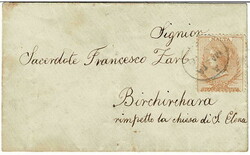 Signior
Sacerdote Francesco Zarb
Birchirchara
rimpetto la chiesa di S. Elena